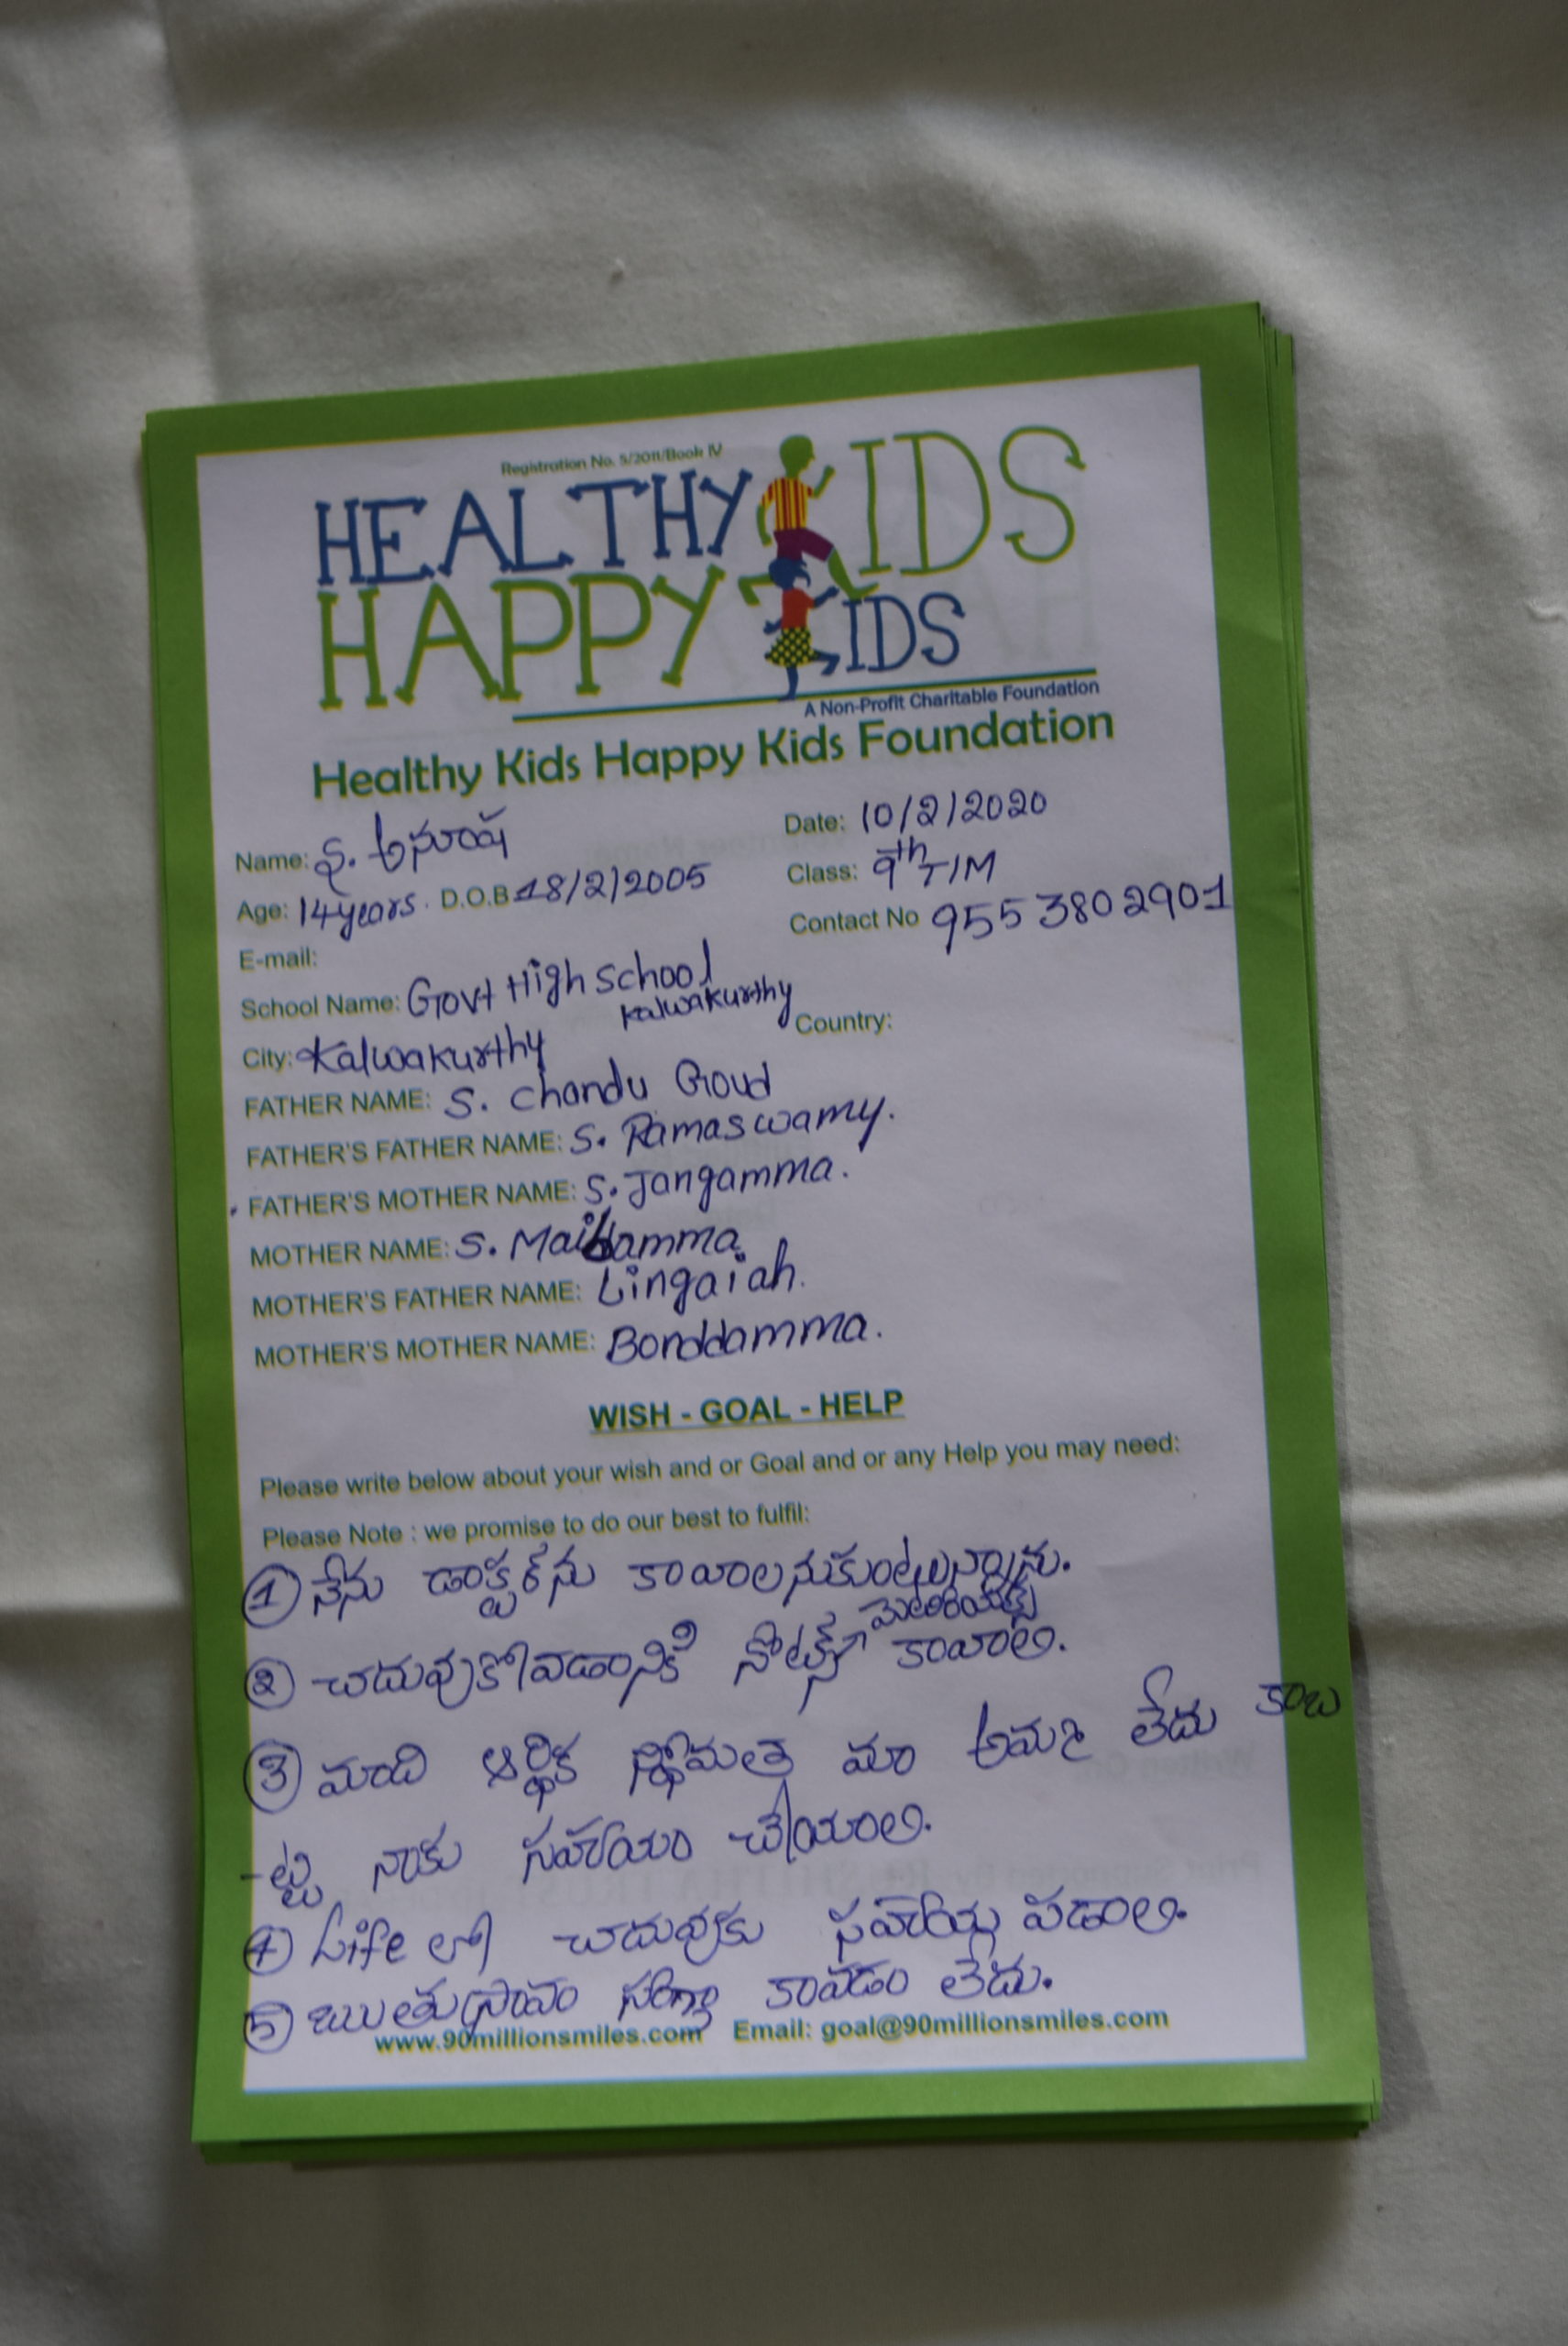 Registration No. 5/2011/Book IV
HEALTHY KIDS
HAPPY KIDS
A Non-Profit Charitable Foundation
Healthy Kids Happy Kids Foundation
Name: ఫ. అనూష Date: 10/2/2020
Age: 14years. D.O.B 18/2/2005 Class: 9th T/M
E-mail: Contact No 9553802901
School Name: Govt High School Kalwakurthy
City: Kalwakurthy Country:
FATHER NAME: S. Chandu Goud
FATHER'S FATHER NAME: S. Ramaswamy.
FATHER'S MOTHER NAME: S. Jangamma.
MOTHER NAME: S.
MOTHER'S FATHER NAME: Lingaiah.
MOTHER'S MOTHER NAME: Bonddamma.
WISH - GOAL - HELP
Please write below about your wish and or Goal and or any Help you may need:
Please Note : we promise to do our best to fulfil:
① నేను డాక్టర్‌ను కావాలనుకుంటున్నాను.
② చదువుకోవడానికి నోట్స్ మెటీరియల్స్ కావాలి.
③ మాది ఆర్థిక స్థోమత మా అమ్మ లేదు కాబ
-ట్టి నాకు సహాయం చేయాలి.
④ Life లో చదువుకు సహాయ పడాలి.
⑤ ఋతుస్రావం సరిగ్గా కావడం లేదు.
www.90millionsmiles.com Email: goal@90millionsmiles.com